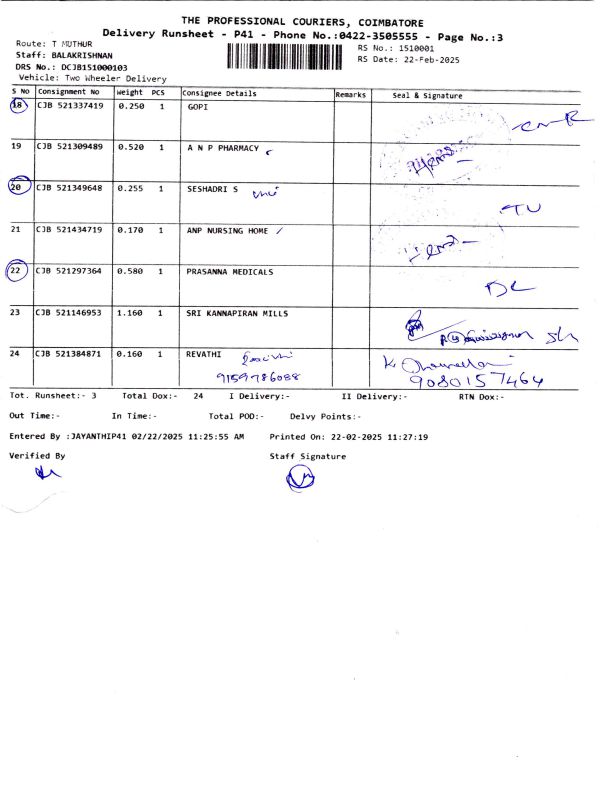 THE PROFESSIONAL COURIERS, COIMBATORE
Delivery Runsheet - P41 - Phone No.:0422-3505555 - Page No.:3
Route: T MUTHUR
RS No.: 1510001
Staff: BALAKRISHNAN
RS Date: 22-Feb-2025
DRS No.: DCJB151000103
Vehicle: Two Wheeler Delivery
S No Consignment No Weight PCS Consignee Details Remarks Seal & Signature
18 CJB 521337419 0.250 1 GOPI
19 CJB 521309489 0.520 1 A N P PHARMACY
20 CJB 521349648 0.255 1 SESHADRI S
21 CJB 521434719 0.170 1 ANP NURSING HOME
22 CJB 521297364 0.580 1 PRASANNA MEDICALS
DL
23 CJB 521146953 1.160 1 SRI KANNAPIRAN MILLS
24 CJB 521384871 0.160 1 REVATHI
9159786088 9080157464
Tot. Runsheet:- 3 Total Dox:- 24 I Delivery:- II Delivery:- RTN Dox:-
Out Time:- In Time:- Total POD:- Delvy Points:-
Entered By :JAYANTHIP41 02/22/2025 11:25:55 AM Printed On: 22-02-2025 11:27:19
Verified By Staff Signature